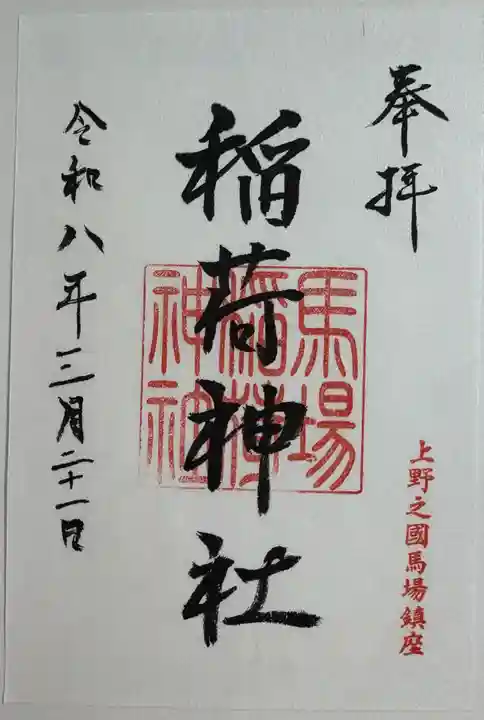 奉拝
上野之國馬場鎮座
馬場
稲荷
神社
稲荷神社
令和八年三月二十一日